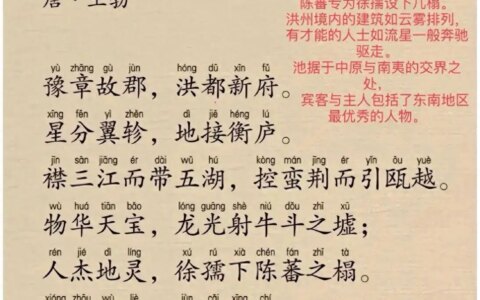 唐·王勃
陈蕃专为徐孺设下几榻。
洪州境内的建筑如云雾排列，
有才能的人士如流星一般奔驰
驱走。
池据于中原与南夷的交界之
处，
宾客与主人包括了东南地区
最优秀的人物。
yù zhāng gù jùn hóng dū xīn fǔ
豫章故郡，洪都新府。
xīng fēn yì zhěn dì jiē héng lú
星分翼轸，地接衡庐。
jīn sān jiāng ér dài wǔ hú kòng mán jīng ér yǐn ōu yuè
襟三江而带五湖，控蛮荆而引瓯越。
wù huá tiān bǎo lóng guāng shè niú dǒu zhī xū
物华天宝，龙光射牛斗之墟；
rén jié dì líng xú rú xià chén fān zhī tà
人杰地灵，徐孺下陈蕃之榻。
xióng zhōu wù liè jùn cǎi xīng chí